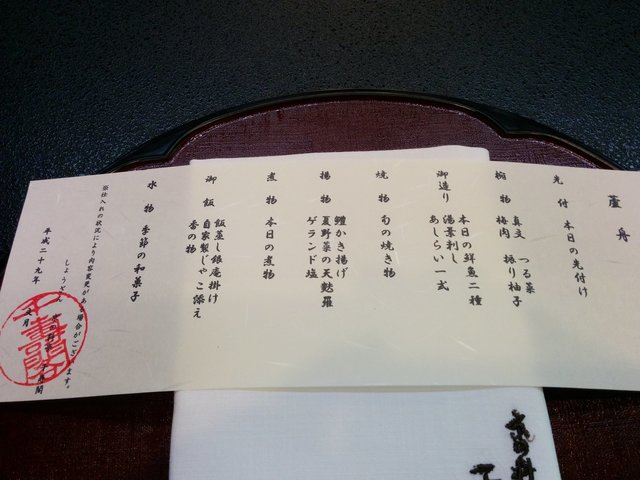 蘆舟
先付 本日の先付け
椀物 真丈 つる菜
梅肉 振り柚子
御造り 本日の鮮魚二種
湯葉刺し
あしらい一式
焼物 旬の焼き物
揚物 鱧かき揚げ
夏野菜の天麩羅
ゲランド塩
煮物 本日の煮物
御飯 飯蒸し銀庵掛け
自家製じゃこ添え
香の物
水物 季節の和菓子
※仕入れの状況により内容変更がある場合がございます。
しょうざん
平成二十九年